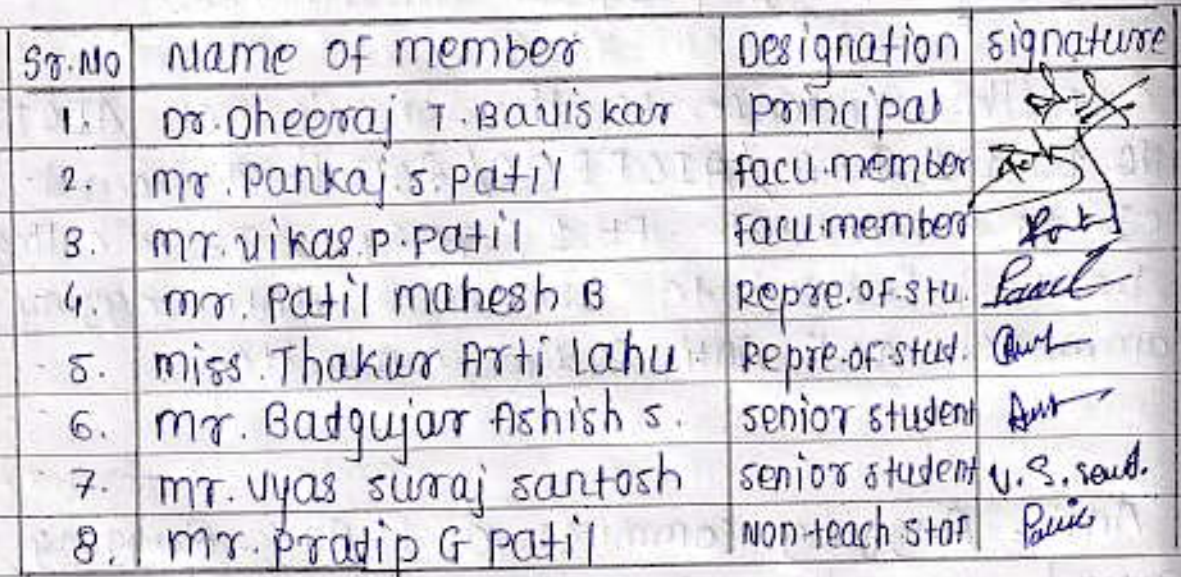 Sr.No Name of member Designation signature
1. Dr. Dheeraj T. Baviskar principal
2. mr. Pankaj.s.patil facu.member
3. mr. vikas.p.patil facu.member
4. mr. Patil mahesh B Repre.of.stu.
5. miss. Thakur Arti Lahu. Repre.of.stud.
6. mr. Badgujar Ashish s. senior student
7. mr. vyas suraj santosh senior student v.S.
8. mr. pradip G patil Non-teach staf